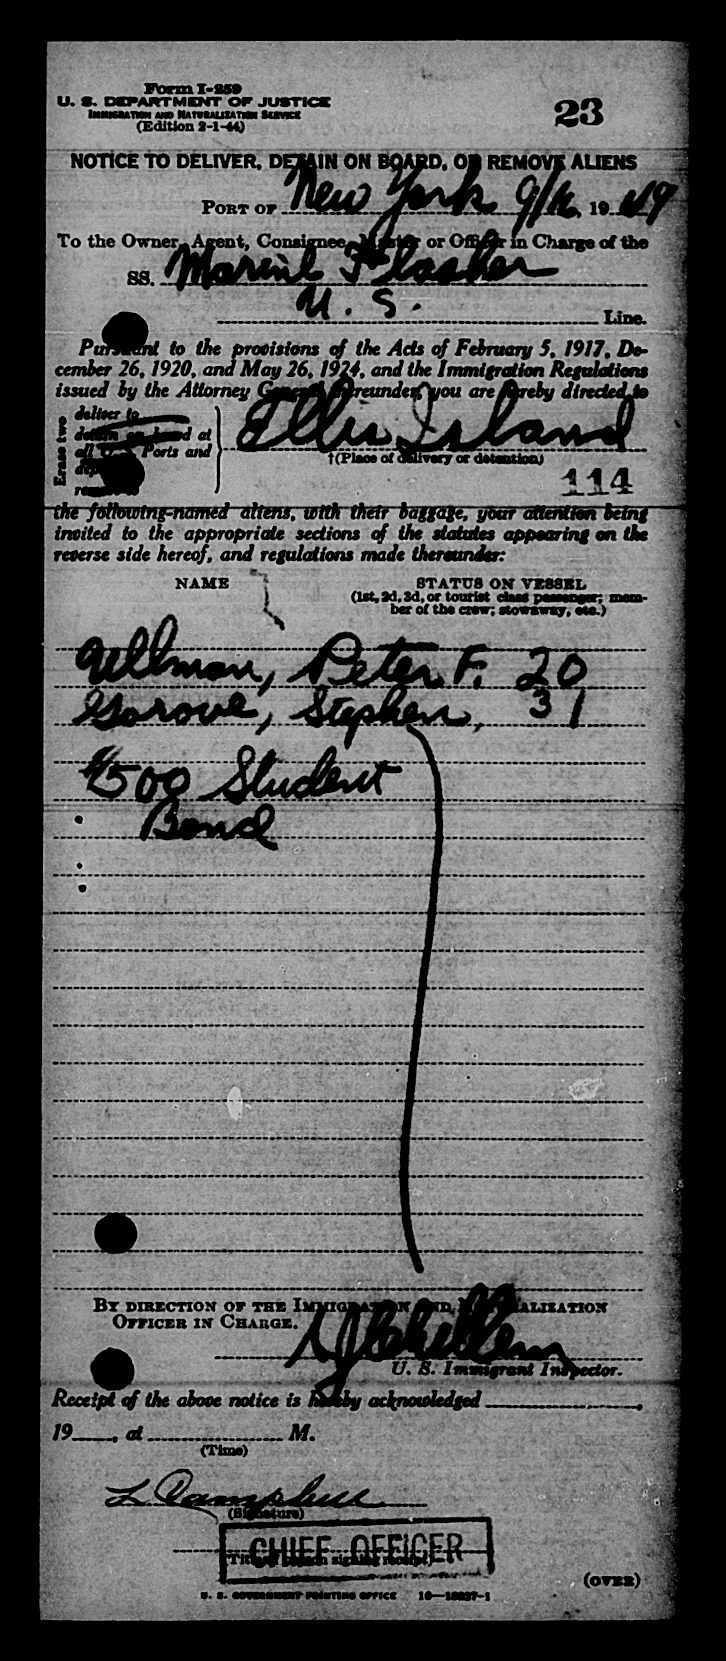 Form I-259
U. S. DEPARTMENT OF JUSTICE
IMMIGRATION AND NATURALIZATION SERVICE
(Edition 2-1-44)
23
NOTICE TO DELIVER, DETAIN ON BOARD, OR REMOVE ALIENS
PORT OF New York 9/16, 1949
To the Owner, Agent, Consignee, Master or Officer in Charge of the
SS. Marine Flasher
U. S. Line.
Pursuant to the provisions of the Acts of February 5, 1917, De-
cember 26, 1920, and May 26, 1924, and the Immigration Regulations
issued by the Attorney General thereunder, you are hereby directed to
Erase two
deliver to
detain on board at
all U. S. Ports and
Ellis Island
†(Place of delivery or detention)
114
the following-named aliens, with their baggage, your attention being
invited to the appropriate sections of the statutes appearing on the
reverse side hereof, and regulations made thereunder:
NAME
STATUS ON VESSEL
(1st, 2d, 3d, or tourist class passenger; mem-
ber of the crew; stowaway, etc.)
Ullman, Peter F. 20
Gorove, Stephen, 31
$500 Student
Bond
BY DIRECTION OF THE IMMIGRATION AND NATURALIZATION
OFFICER IN CHARGE.
U. S. Immigrant Inspector.
Receipt of the above notice is hereby acknowledged
19 , at M.
(Time)
L Campbell
(Signature)
CHIEF OFFICER
(Title of person signing receipt)
(OVER)
U. S. GOVERNMENT PRINTING OFFICE 16—18837-1